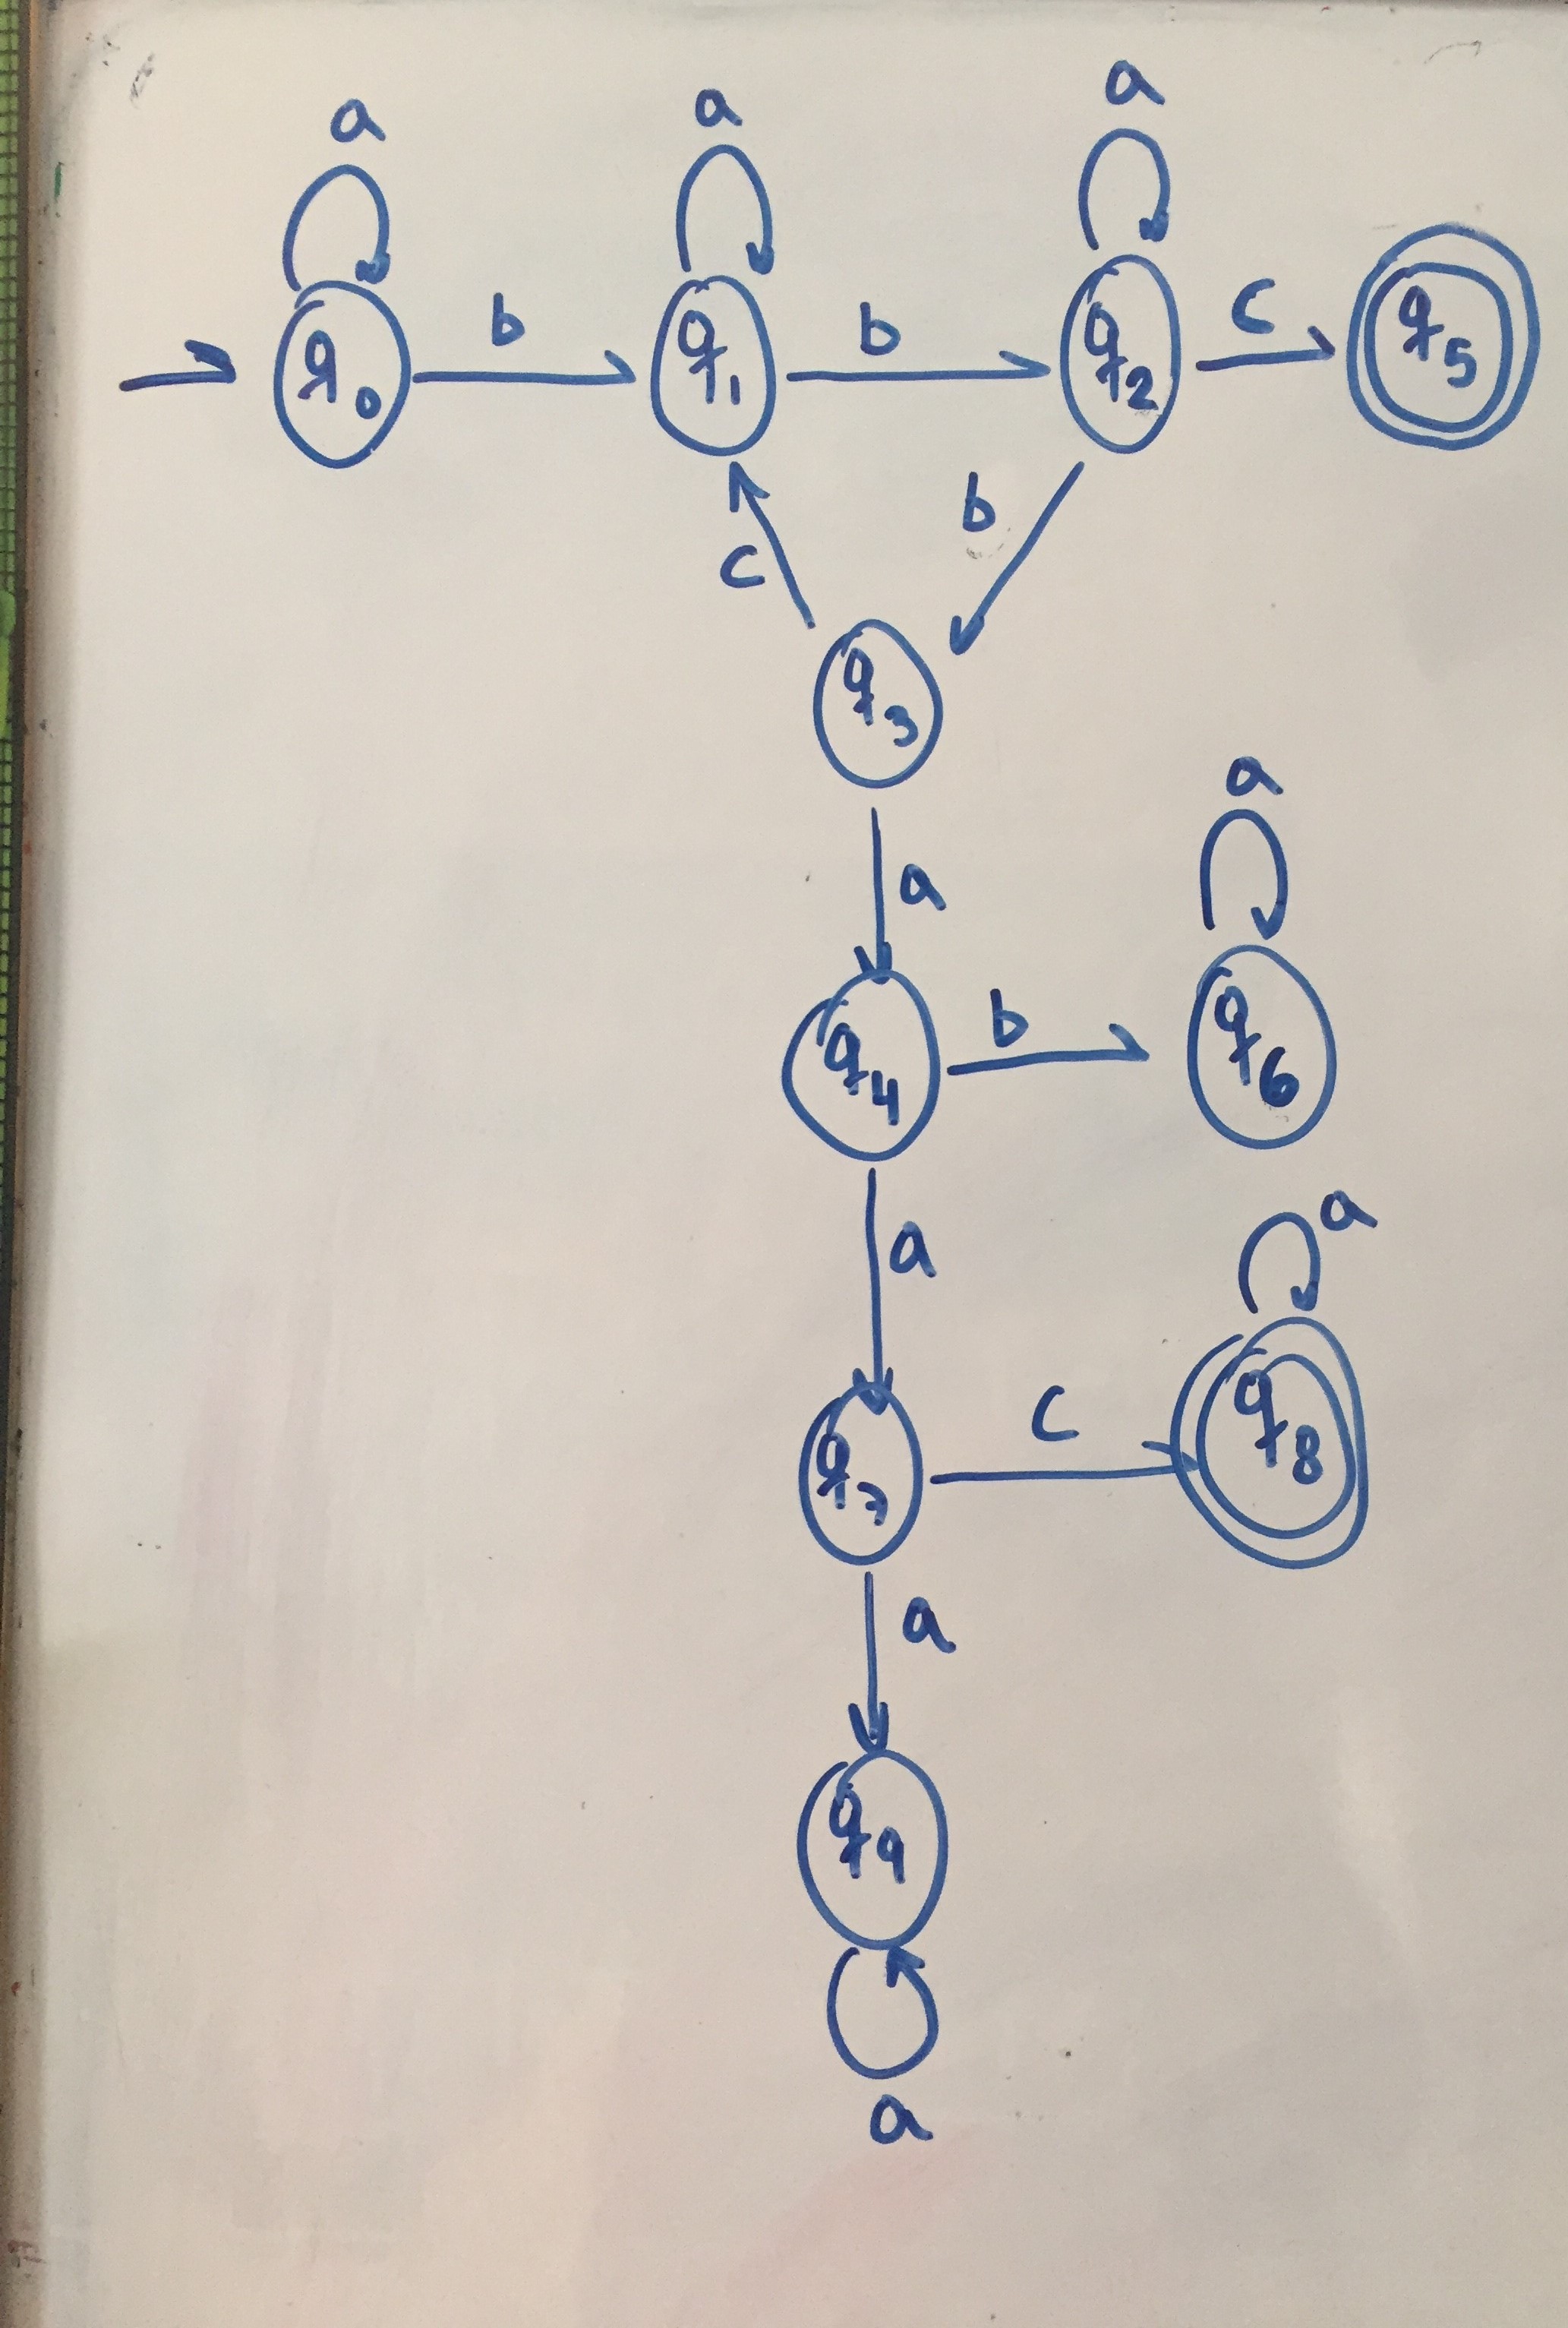 a a a
q0 b q1 b q2 c q5
c b
q3
a a
q4 b q6
a a
q7 c q8
a
q9
a